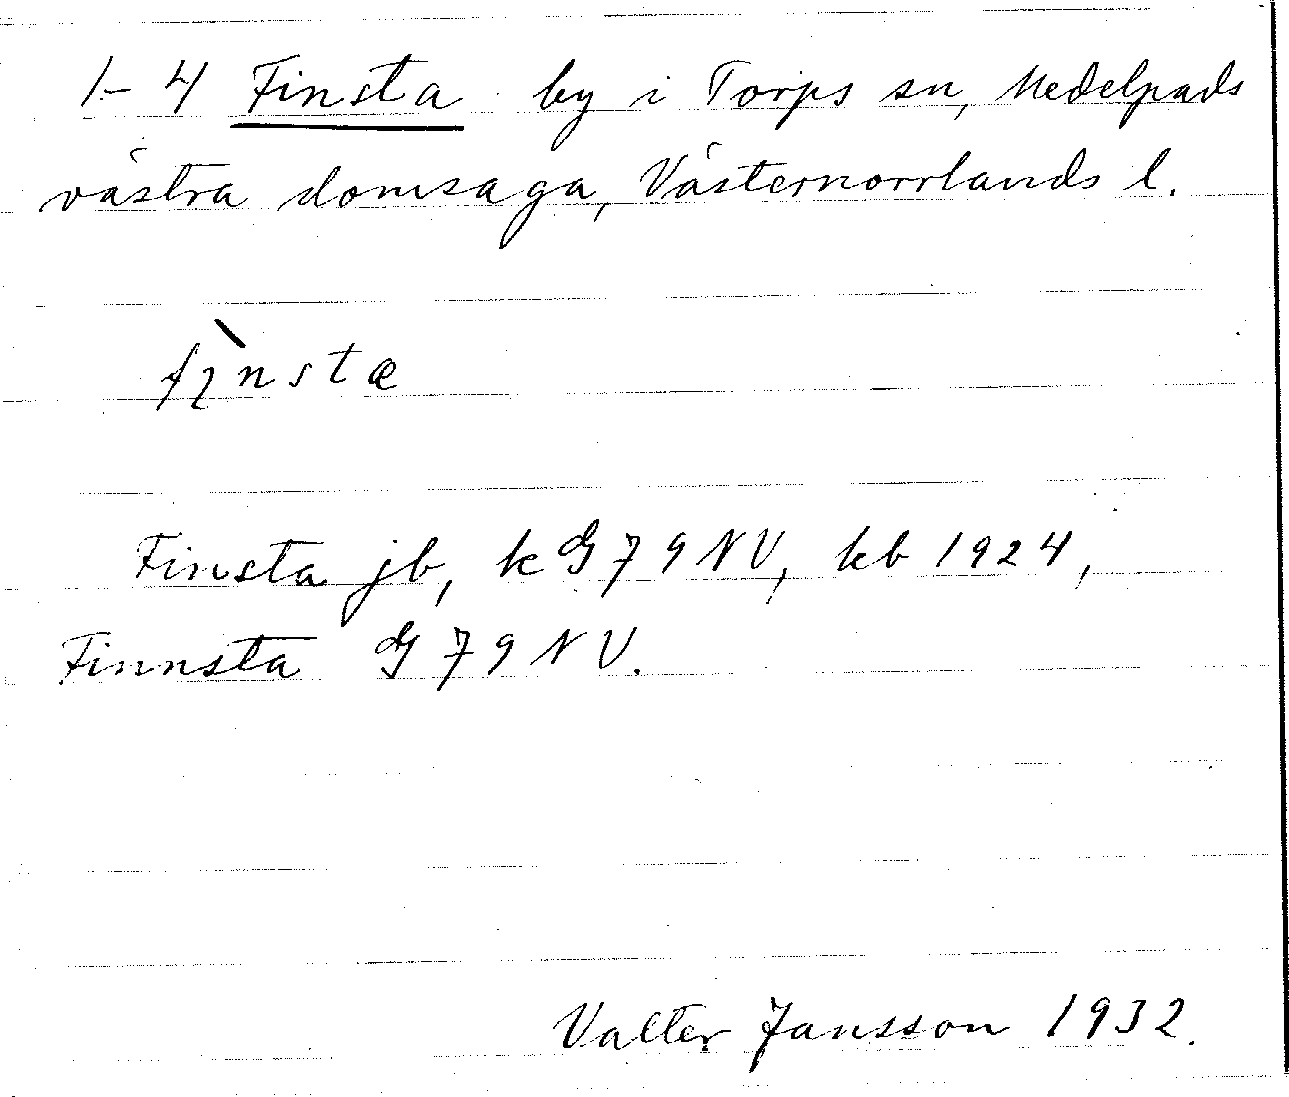 1-4 Finsta by i Torps sn, Medelpads
västra domsaga, Västernorrlands l.
fı̨̀nstæ
Finsta jb, k G 79 NV, kb 1924,
Finnsta G 79 NV.
Valter Jansson 1932.